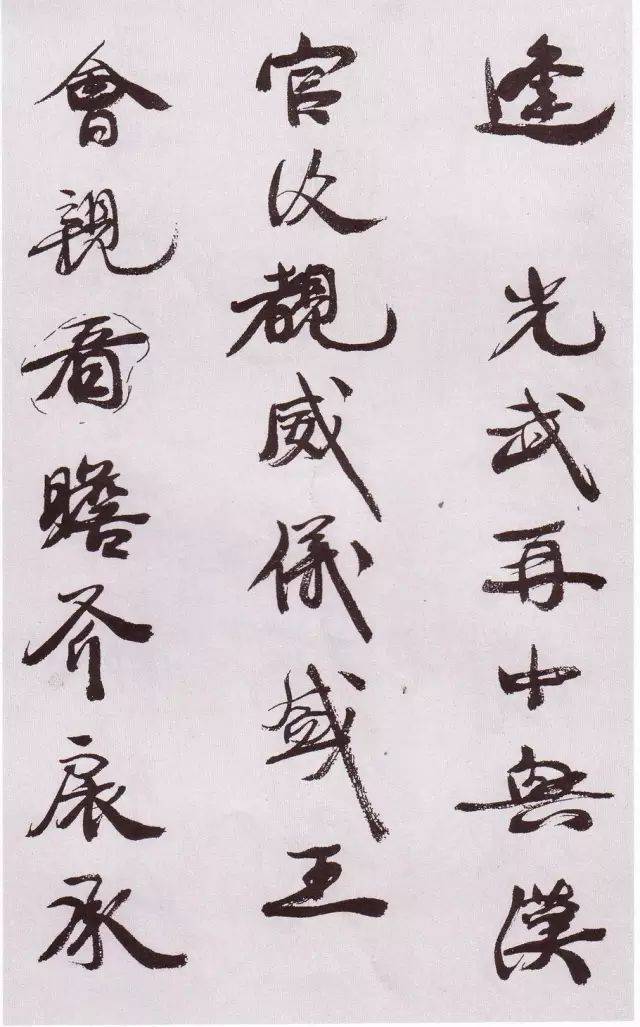 逢 光武再中興漢
官改覩威儀盛王
會親看瞻斧扆承